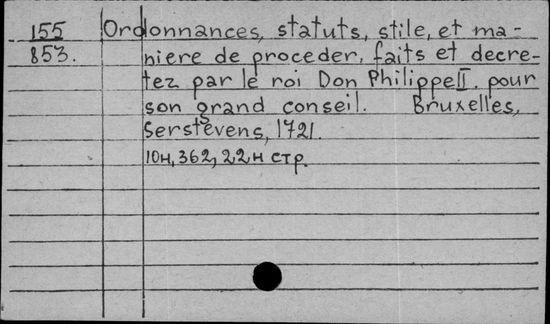 155 Ordonnances, statuts, stile, et ma-
853. niere de proceder, faits et decre-
tez par le roi Don Philippe II. pour
son grand conseil. Bruxelles,
Serstevens, 1721.
10н, 362, 22н стр.